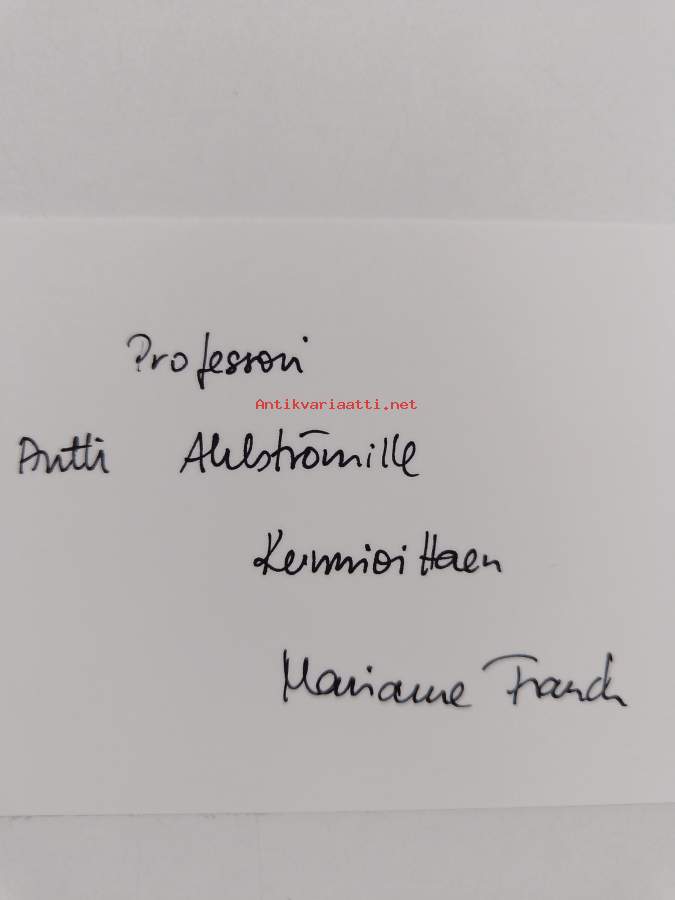 Professori
Antikvariaatti.net
Antti Ahlströmille
Kunnioittaen
Marianne